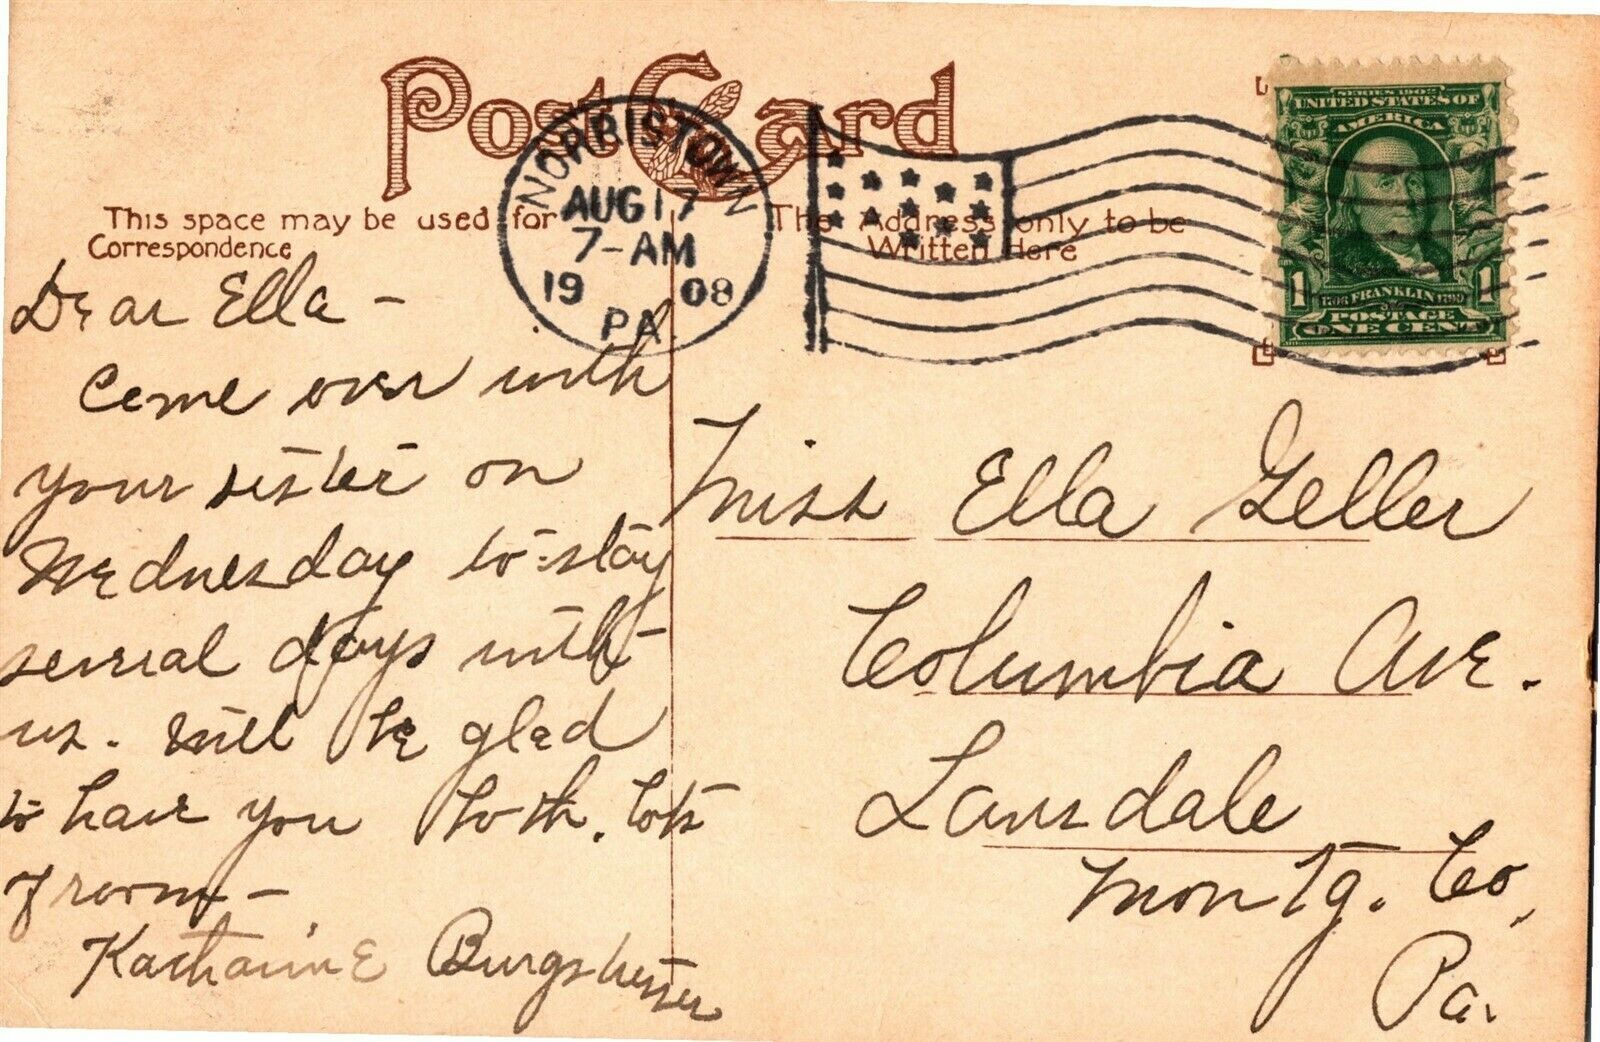 Post Card
This space may be used for
Correspondence
The Address only to be
Written Here
NORRISTOWN
AUG 17
7-AM
19 08
PA
SERIES 1902
UNITED STATES OF
AMERICA
1 1706 FRANKLIN 1790 1
POSTAGE
ONE CENT
Dear Ella -
Come over with
your sister on
Wednesday to stay
several days with
us. Will be glad
to have you both. Lots
of room -
Katharine
Miss Ella Geller
Columbia Ave.
Lansdale
Montg. Co,
Pa.